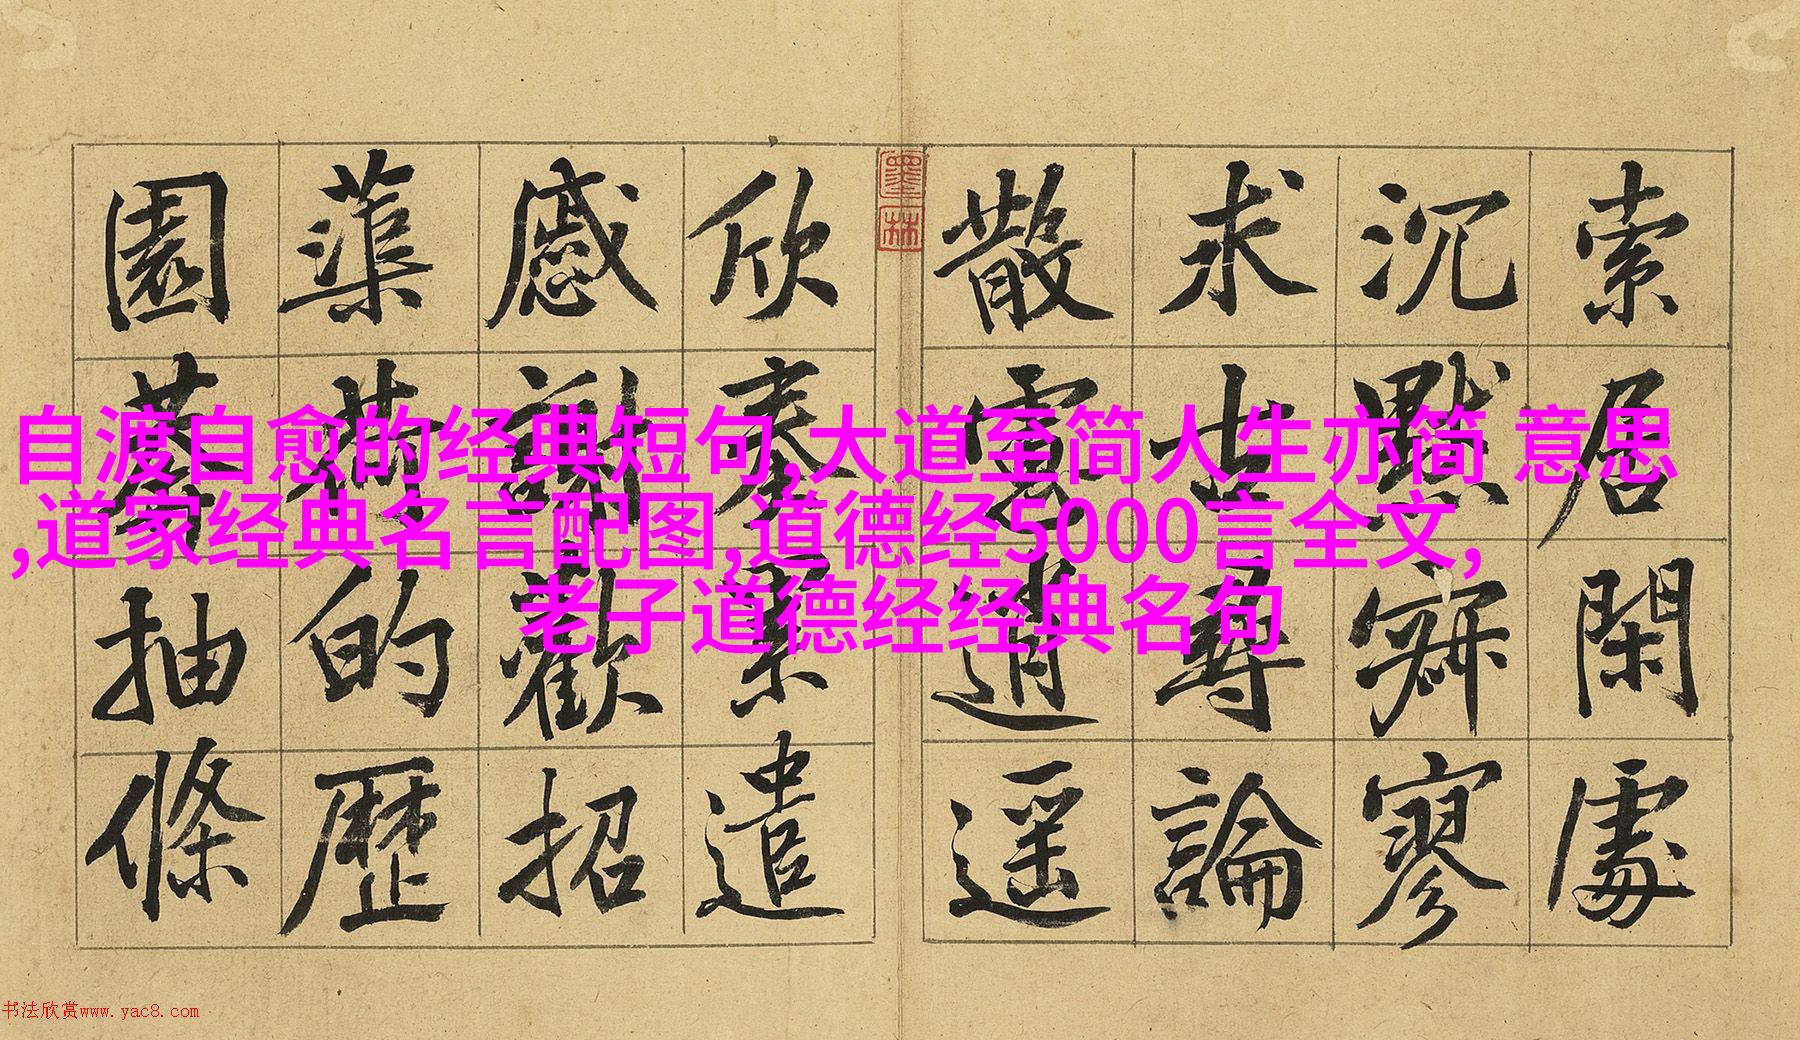 索居閑處
沉默寂寥
求古尋論
散慮逍遥
欣奏累遣
慼謝歡招
蕖荷的歷
園莽抽條
墨林
自渡自愈的经典短句,大道至简人生亦简 意思
,道家经典名言配图,道德经5000言全文,
老子道德经经典名句
书法欣赏www.yac8.com